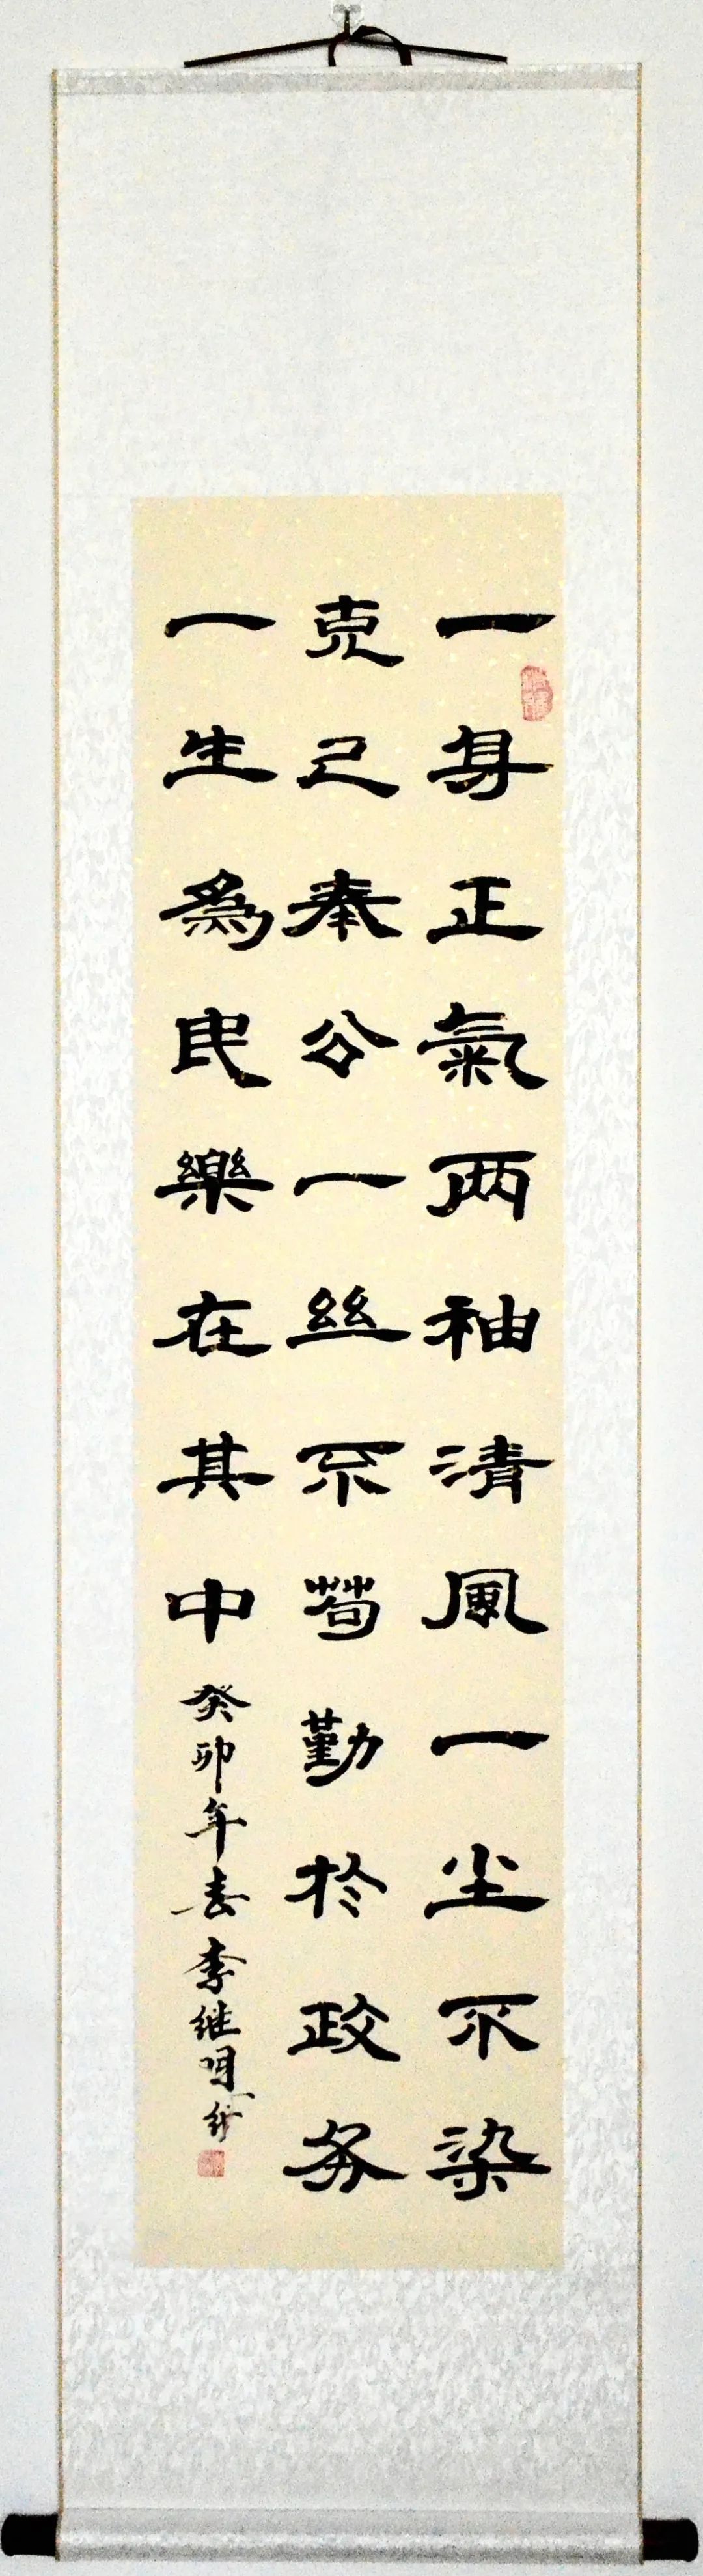 一身正氣两袖清風一尘不染
克己奉公一丝不苟勤於政务
一生為民樂在其中
癸卯年春李继明